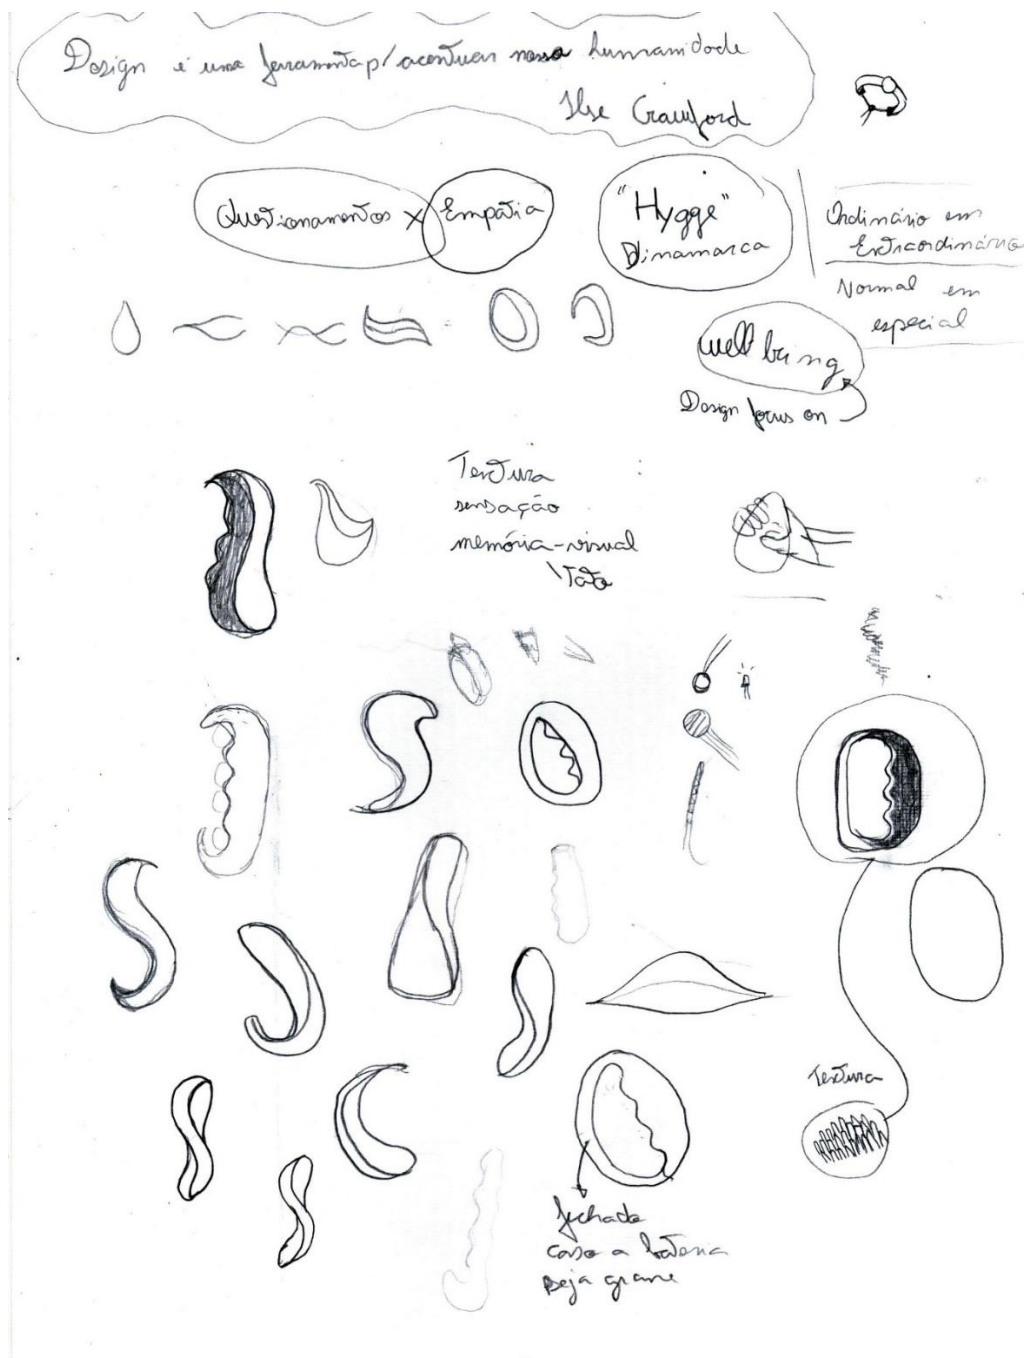 Design é uma ferramenta p/ acentuar nossa humanidade
Ilse Crawford
Questionamentos X Empatia
"Hygge"
Dinamarca
Ordinário em
Extraordinário
Normal em
especial
well being
Design focus on
Textura
sensação
memória-visual
\Tato
Textura
fechado
caso a bateria
seja grane